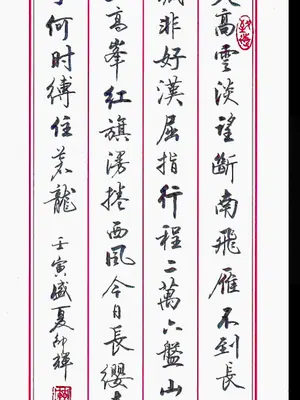 天高雲淡望斷南飛雁不到長
城非好漢屈指行程二萬六盤山
上高峯紅旗漫捲西風今日長纓在
手何时縛住苍龍 壬寅盛夏